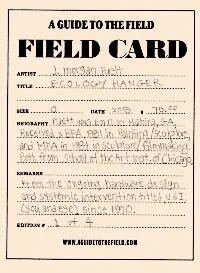 A GUIDE TO THE FIELD
FIELD CARD
ARTIST J. morgan Puett
TITLE ECOLOGY HANGER
SIZE 0 DATE 2015 $ 75.00
BIOGRAPHY Puett was born in Hahira, GA,
Received a BFA, 1981 in Painting/Sculpture,
and MFA in 1984 in Sculpture/Filmmaking,
Both from School of the Art Inst. of Chicago.
REMARKS
From the ongoing hardware design
and systemic intervention titled U&I
(you and eye) since 1990.
EDITION # 1 of 4
WWW.AGUIDETOTHEFIELD.COM